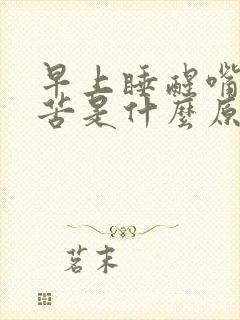 早上睡醒嘴
苦是什麼原
茗末